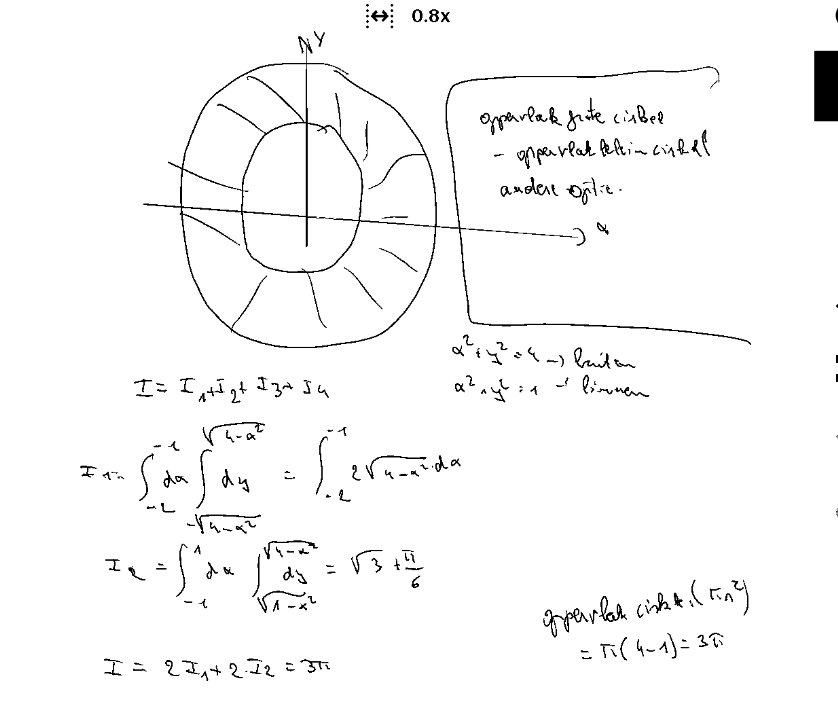 0.8x
y
oppervlak grote cirkel
- oppervlak klein cirkel
andere optie.
x
x² + y² = 4 → buiten
x² + y² = 1 → binnen
I = I₁ + I₂ + I₃ + I₄
I₁ = ∫₋₂⁻¹ dx ∫_{-√(4-x²)}^{√(4-x²)} dy = ∫₋₂⁻¹ 2√(4-x²) dx
I₂ = ∫₋₁¹ dx ∫_{√(1-x²)}^{√(4-x²)} dy = √3 + π/6
oppervlak cirkel (πr²)
= π(4-1) = 3π
I = 2I₁ + 2·I₂ = 3π